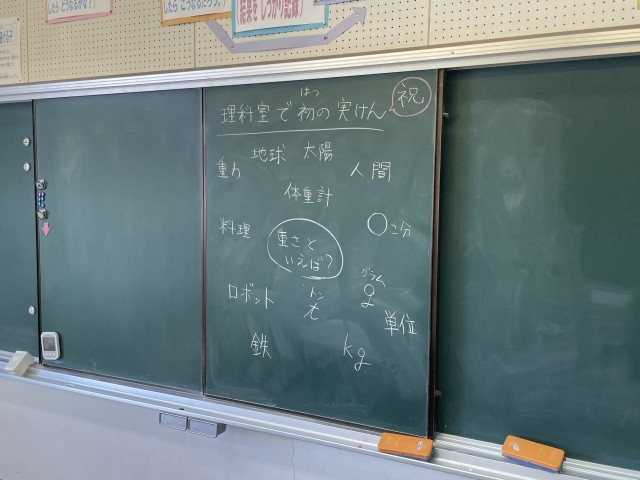 したら どうなるかな？
したら こうなるだろう。
結果を しっかり記録
はつ
理科室で初の実けん
祝
地球 太陽
重力
人間
体重計
料理
〇こ分
重さと
いえば？
グラム
ロボット
トン
t
g
単位
鉄
kg